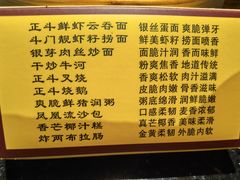 正斗鲜虾云吞面 银丝蛋面 爽脆弹牙
斗门靓虾籽捞面 鲜美虾籽 捞面喷香
银芽肉丝炒面 面脆汁润 香而味鲜
干炒牛河 粉爽焦香 地道传统
正斗叉烧 香爽松软 肉汁溢满
正斗烧鹅 皮脆肉嫩 骨香滋味
爽脆鲜猪润粥 粥底绵滑 润鲜脆嫩
凤凰流沙包 口感柔韧 麦香蛋香
香芒椰汁糕 真芒椰香 美味柔滑
炸两布拉肠 金黄柔韧 外脆内软